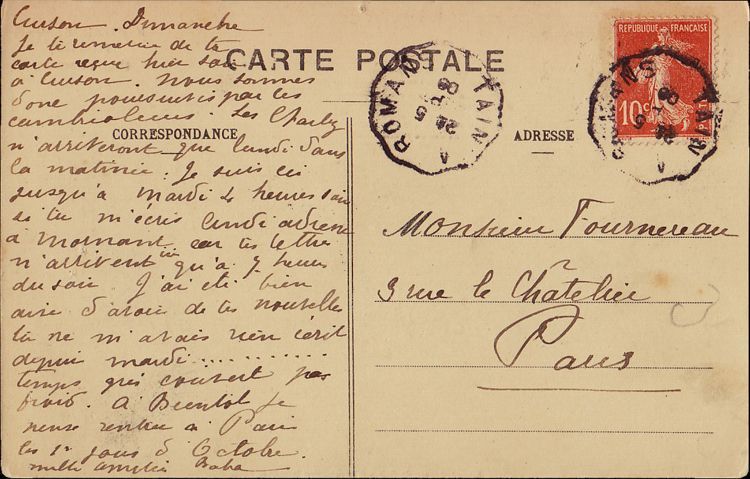 Curson. Dimanche
Je te remercie de ta
carte reçue hier soir
à Curson. Nous sommes
donc poursuivis par les
cambrioleurs. Les Charly
n'arriveront que lundi dans
la matinée. Je suis ici
jusqu'à mardi 4 heures
si tu m'écris lundi adresse
à Mornant car les lettres
n'arrivent ici qu'à 7 heures
du soir. J'ai été bien
aise d'avoir de tes nouvelles
tu ne m'avais rien écrit
depuis mardi............
temps gris couvert pas
froid. A Bientôt je
pense rentrer à Paris
les 1er jours d'Octobre.
mille amitiés
CARTE POSTALE
CORRESPONDANCE
ADRESSE
REPUBLIQUE FRANÇAISE
10c
ROMANS
TAIN
ROMANS
TAIN
Monsieur Fournereau
3 rue le Châtelier
Paris